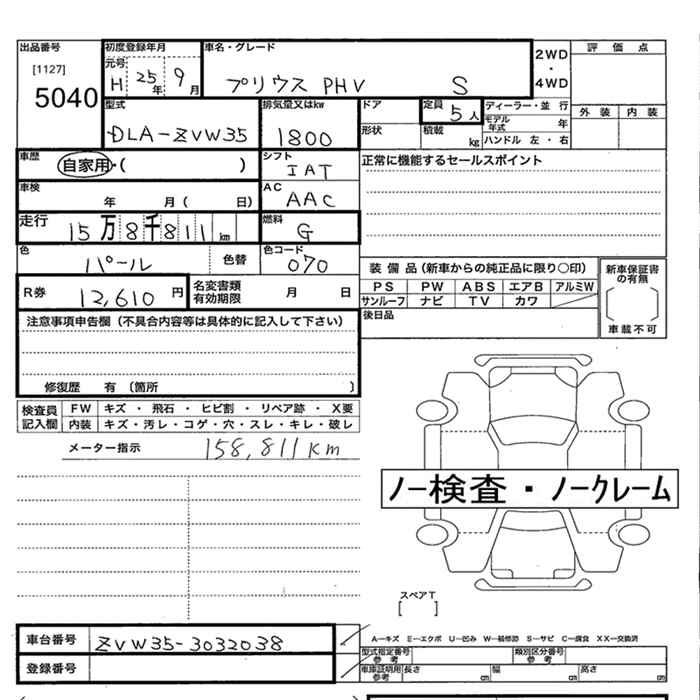 出品番号 初度登録年月 車名・グレード 2WD・4WD 評価点
[1127] 元号
5040 H 25年 9月 プリウス PHV S
型式 排気量又はkw ドア 定員 5人 ディーラー・並行 外装 内装
DLA-ZVW35 1800 形状 積載 kg モデル年式 年
ハンドル 左・右
車歴 自家用・( ) シフト IAT 正常に機能するセールスポイント
車検 年 月( 日) AC AAC
走行 15万8千811km 燃料 G
色 パール 色替 色コード 070 装備品(新車からの純正品に限り〇印) 新車保証書の有無
R券 12,610円 名変書類有効期限 月 日 PS PW ABS エアB アルミW
サンルーフ ナビ TV カワ
車載不可
注意事項申告欄(不具合内容等は具体的に記入して下さい) 後日品
修復歴 有(箇所 )
検査員記入欄 FW キズ・飛石・ヒビ割・リペア跡・X要
内装 キズ・汚レ・コゲ・穴・スレ・キレ・破レ
メーター指示 158,811km
ノー検査・ノークレーム
スペアT
[ ]
車台番号 ZVW35-3032038 A―キズ E―エクボ U―凹み W―補修跡 S―サビ C―腐食 XX―交換済
登録番号 型式指定番号 参考 類別区分番号 参考
車庫証明用 参考 長さ cm 幅 cm 高さ cm